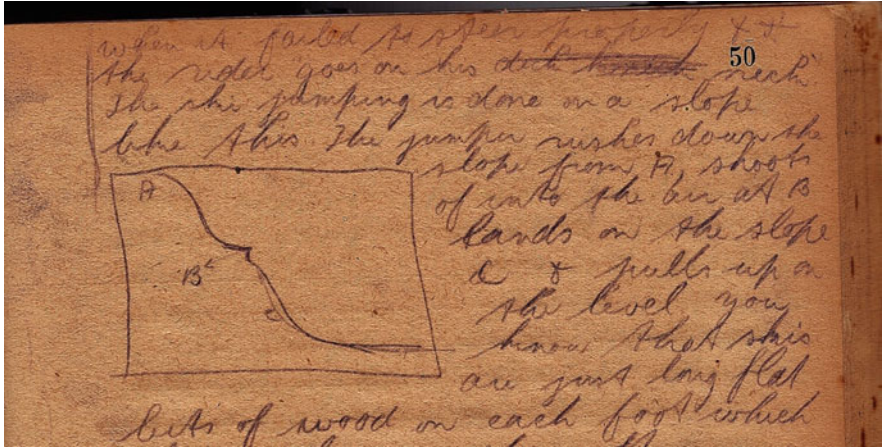 when it failed to steer properly & +
50
the rider goes on his neck
The ski jumping is done on a slope
like this. The jumper rushes down the
slope from A, shoots
of into the air at B
lands on the slope
C & pulls up on
the level you
know that skis
are just long flat
bits of wood on each foot which
A
B
C